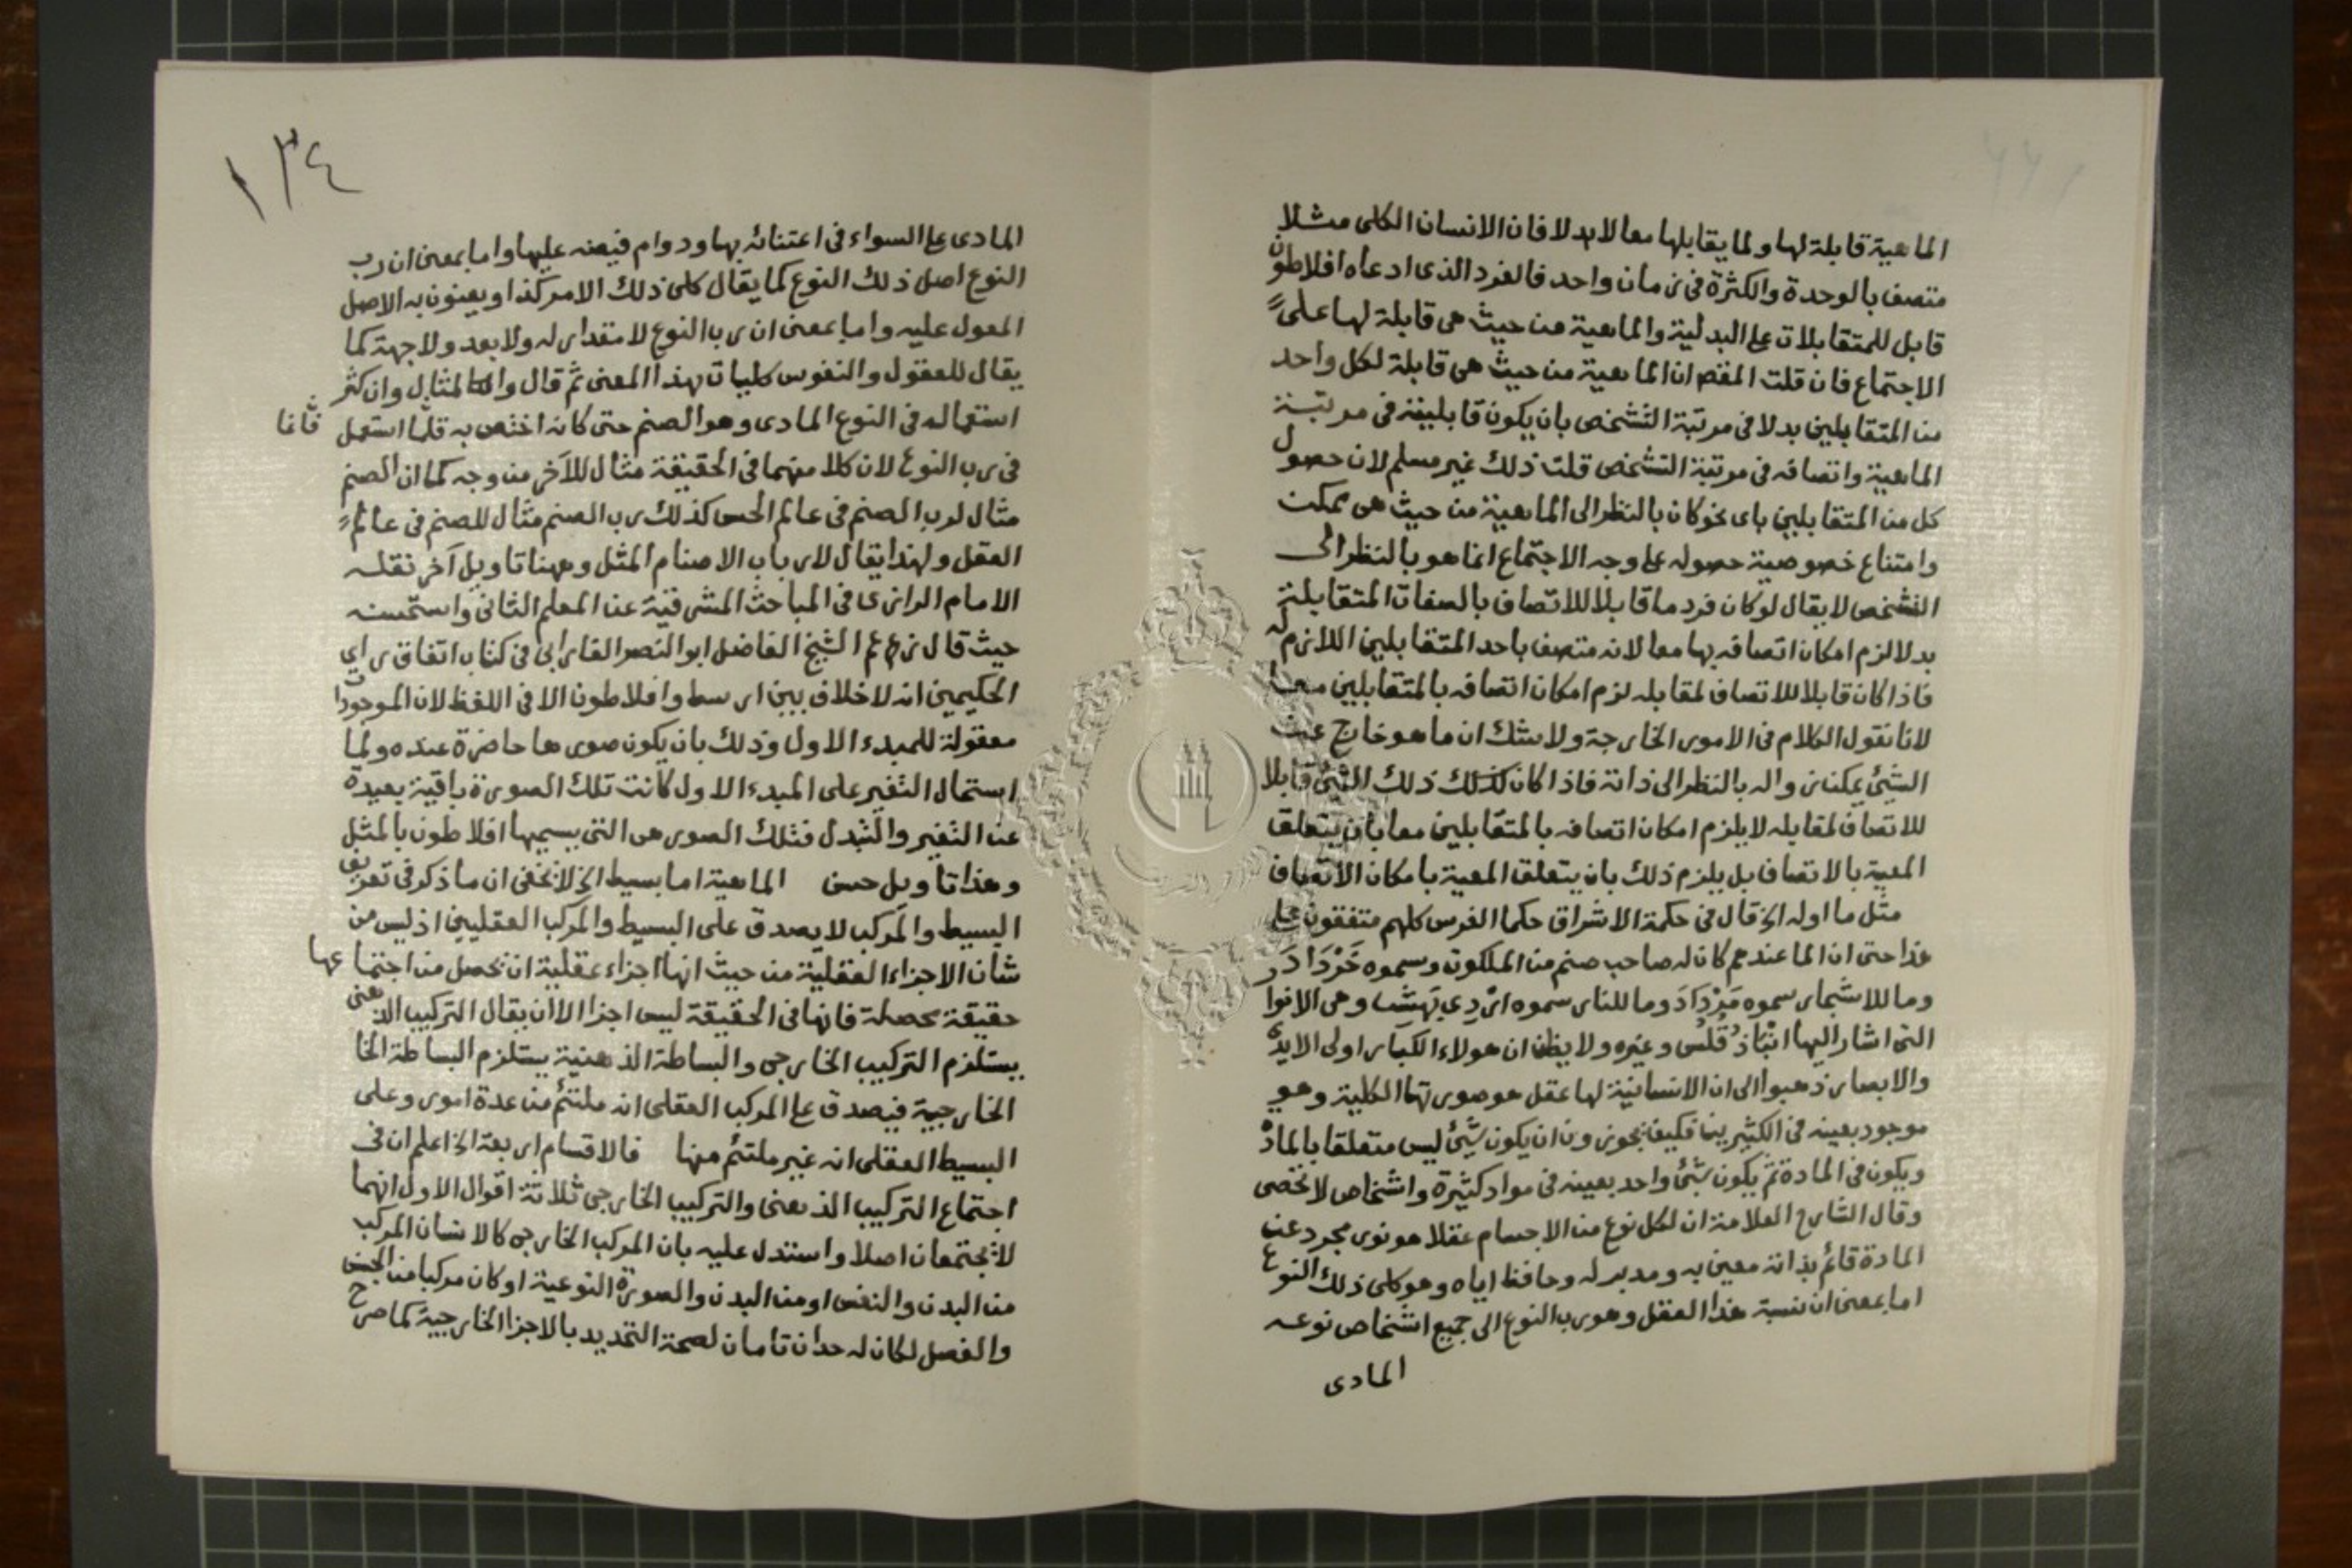 الماهية قابلة لها ولما يقابلها معا لا بدلا فان الانسان الكلى مثلا
متصف بالوحدة والكثرة فى زمان واحد فالفرد الذى ادعاه افلاطون
قابل للمتقابلات على البدلية والماهية من حيث هى قابلة لها على
الاجتماع فان قلت المقص ان الماهية من حيث هى قابلة لكل واحد
من المتقابلين بدلا فى مرتبة التشخص بان يكون قابليته فى مرتبة
الماهية واتصافه فى مرتبة التشخص قلت ذلك غير مسلم لان حصول
كل من المتقابلين باى نحو كان بالنظر الى الماهية من حيث هى ممكن
وامتناع خصوصية حصوله على وجه الاجتماع انما هو بالنظر الى
التشخص لا يقال لو كان فرد ما قابلا للاتصاف بالصفات المتقابلة
بدلا لزم امكان اتصافه بها معا لانه متصف باحد المتقابلين اللازم له
فاذا كان قابلا للاتصاف لمقابله لزم امكان اتصافه بالمتقابلين معا
لانا نقول الكلام فى الامور الخارجة ولا شك ان ما هو خارج عن
الشئ يمكن زواله بالنظر الى ذاته فاذا كان كذلك ذلك الشئ قابلا
للاتصاف لمقابله لا يلزم امكان اتصافه بالمتقابلين معا بان يتعلق
المعية بالاتصاف بل يلزم ذلك بان يتعلق المعية بامكان الاتصاف
مثل ما اوله الخ قال فى حكمة الاشراق حكما الفرس كلهم متفقون على
هذا حتى ان الما عندهم كان له صاحب صنم من الملكوت وسموه خَرْدَادَ
وما للاشجار سموه مَرْدَادَ وما للنار سموه ارْدِى بَهِشْت وهى الانوا
التى اشار اليها انْبَاذُقُلُس وغيره ولا يظن ان هولاء الكبار اولى الايدى
والابصار ذهبوا الى ان الانسانية لها عقل هو صورتها الكلية وهو
موجود بعينه فى الكثيرين فكيف يجوزون ان يكون شئ ليس متعلقا بالمادة
ويكون فى المادة ثم يكون شئ واحد بعينه فى مواد كثيرة واشخاص لا تحصى
وقال الشارح العلامة ان لكل نوع من الاجسام عقلا هو نور مجرد عن
المادة قائم بذاته معين به ومدبر له وحافظ اياه وهو كلى ذلك النوع
اما بمعنى ان نسبة هذا العقل وهو رب النوع الى جميع اشخاص نوعه
المادى
١٣٤
المادى على السواء فى اعتنائه بها ودوام فيضه عليها واما بمعنى ان رب
النوع اصل ذلك النوع كما يقال كلى ذلك الامر كذا ويعنون به الاصل
المعول عليه واما بمعنى ان رب النوع لا مقدار له ولا بعد ولا جهة كما
يقال للعقول والنفوس كليات بهذا المعنى ثم قال والمثال وان كثر
استعماله فى النوع المادى وهو الصنم حتى كانه اختص به قلما استعمل
فى رب النوع لان كلا منهما فى الحقيقة مثال للآخر من وجه كما ان الصنم
مثال لرب الصنم فى عالم الحس كذلك رب الصنم مثال للصنم فى عالم
العقل ولهذا يقال لارباب الاصنام المثل وههنا تاويل آخر نقله
الامام الرازى فى المباحث المشرقية عن المعلم الثانى واستحسنه
حيث قال زعم الشيخ الفاضل ابو النصر الفارابى فى كتاب اتفاق راى
الحكيمين انه لا خلاف بين ارسط وافلاطون الا فى اللفظ لان الموجودات
معقولة للمبدء الاول وذلك بان يكون صورها حاضرة عنده ولما
استحال التغير على المبدء الاول كانت تلك الصورة باقية بعيدة
عن التغير والتبدل فتلك الصور هى التى يسميها افلاطون بالمثل
وهذا تاويل حسن الماهية اما بسيط الخ لا يخفى ان ما ذكر فى تعريف
البسيط والمركب لا يصدق على البسيط والمركب العقليين اذ ليس من
شان الاجزاء العقلية من حيث انها اجزاء عقلية ان تحصل من اجتماعها
حقيقة محصلة فانها فى الحقيقة ليس اجزا الا ان يقال التركيب الذهنى
يستلزم التركيب الخارجى والبساطة الذهنية يستلزم البساطة الخا
الخارجية فيصدق على المركب العقلى انه ملتئم من عدة امور وعلى
البسيط العقلى انه غير ملتئم منها فالاقسام اربعة الخ اعلم ان فى
اجتماع التركيب الذهنى والتركيب الخارجى ثلاثة اقوال الاول انهما
لا يجتمعان اصلا واستدل عليه بان المركب الخارجى كالانسان المركب
من البدن والنفس او من البدن والصورة النوعية او كان مركبا من الجنس
والفصل لكان له حدان تامان لصحة التحديد بالاجزا الخارجية كما صرح